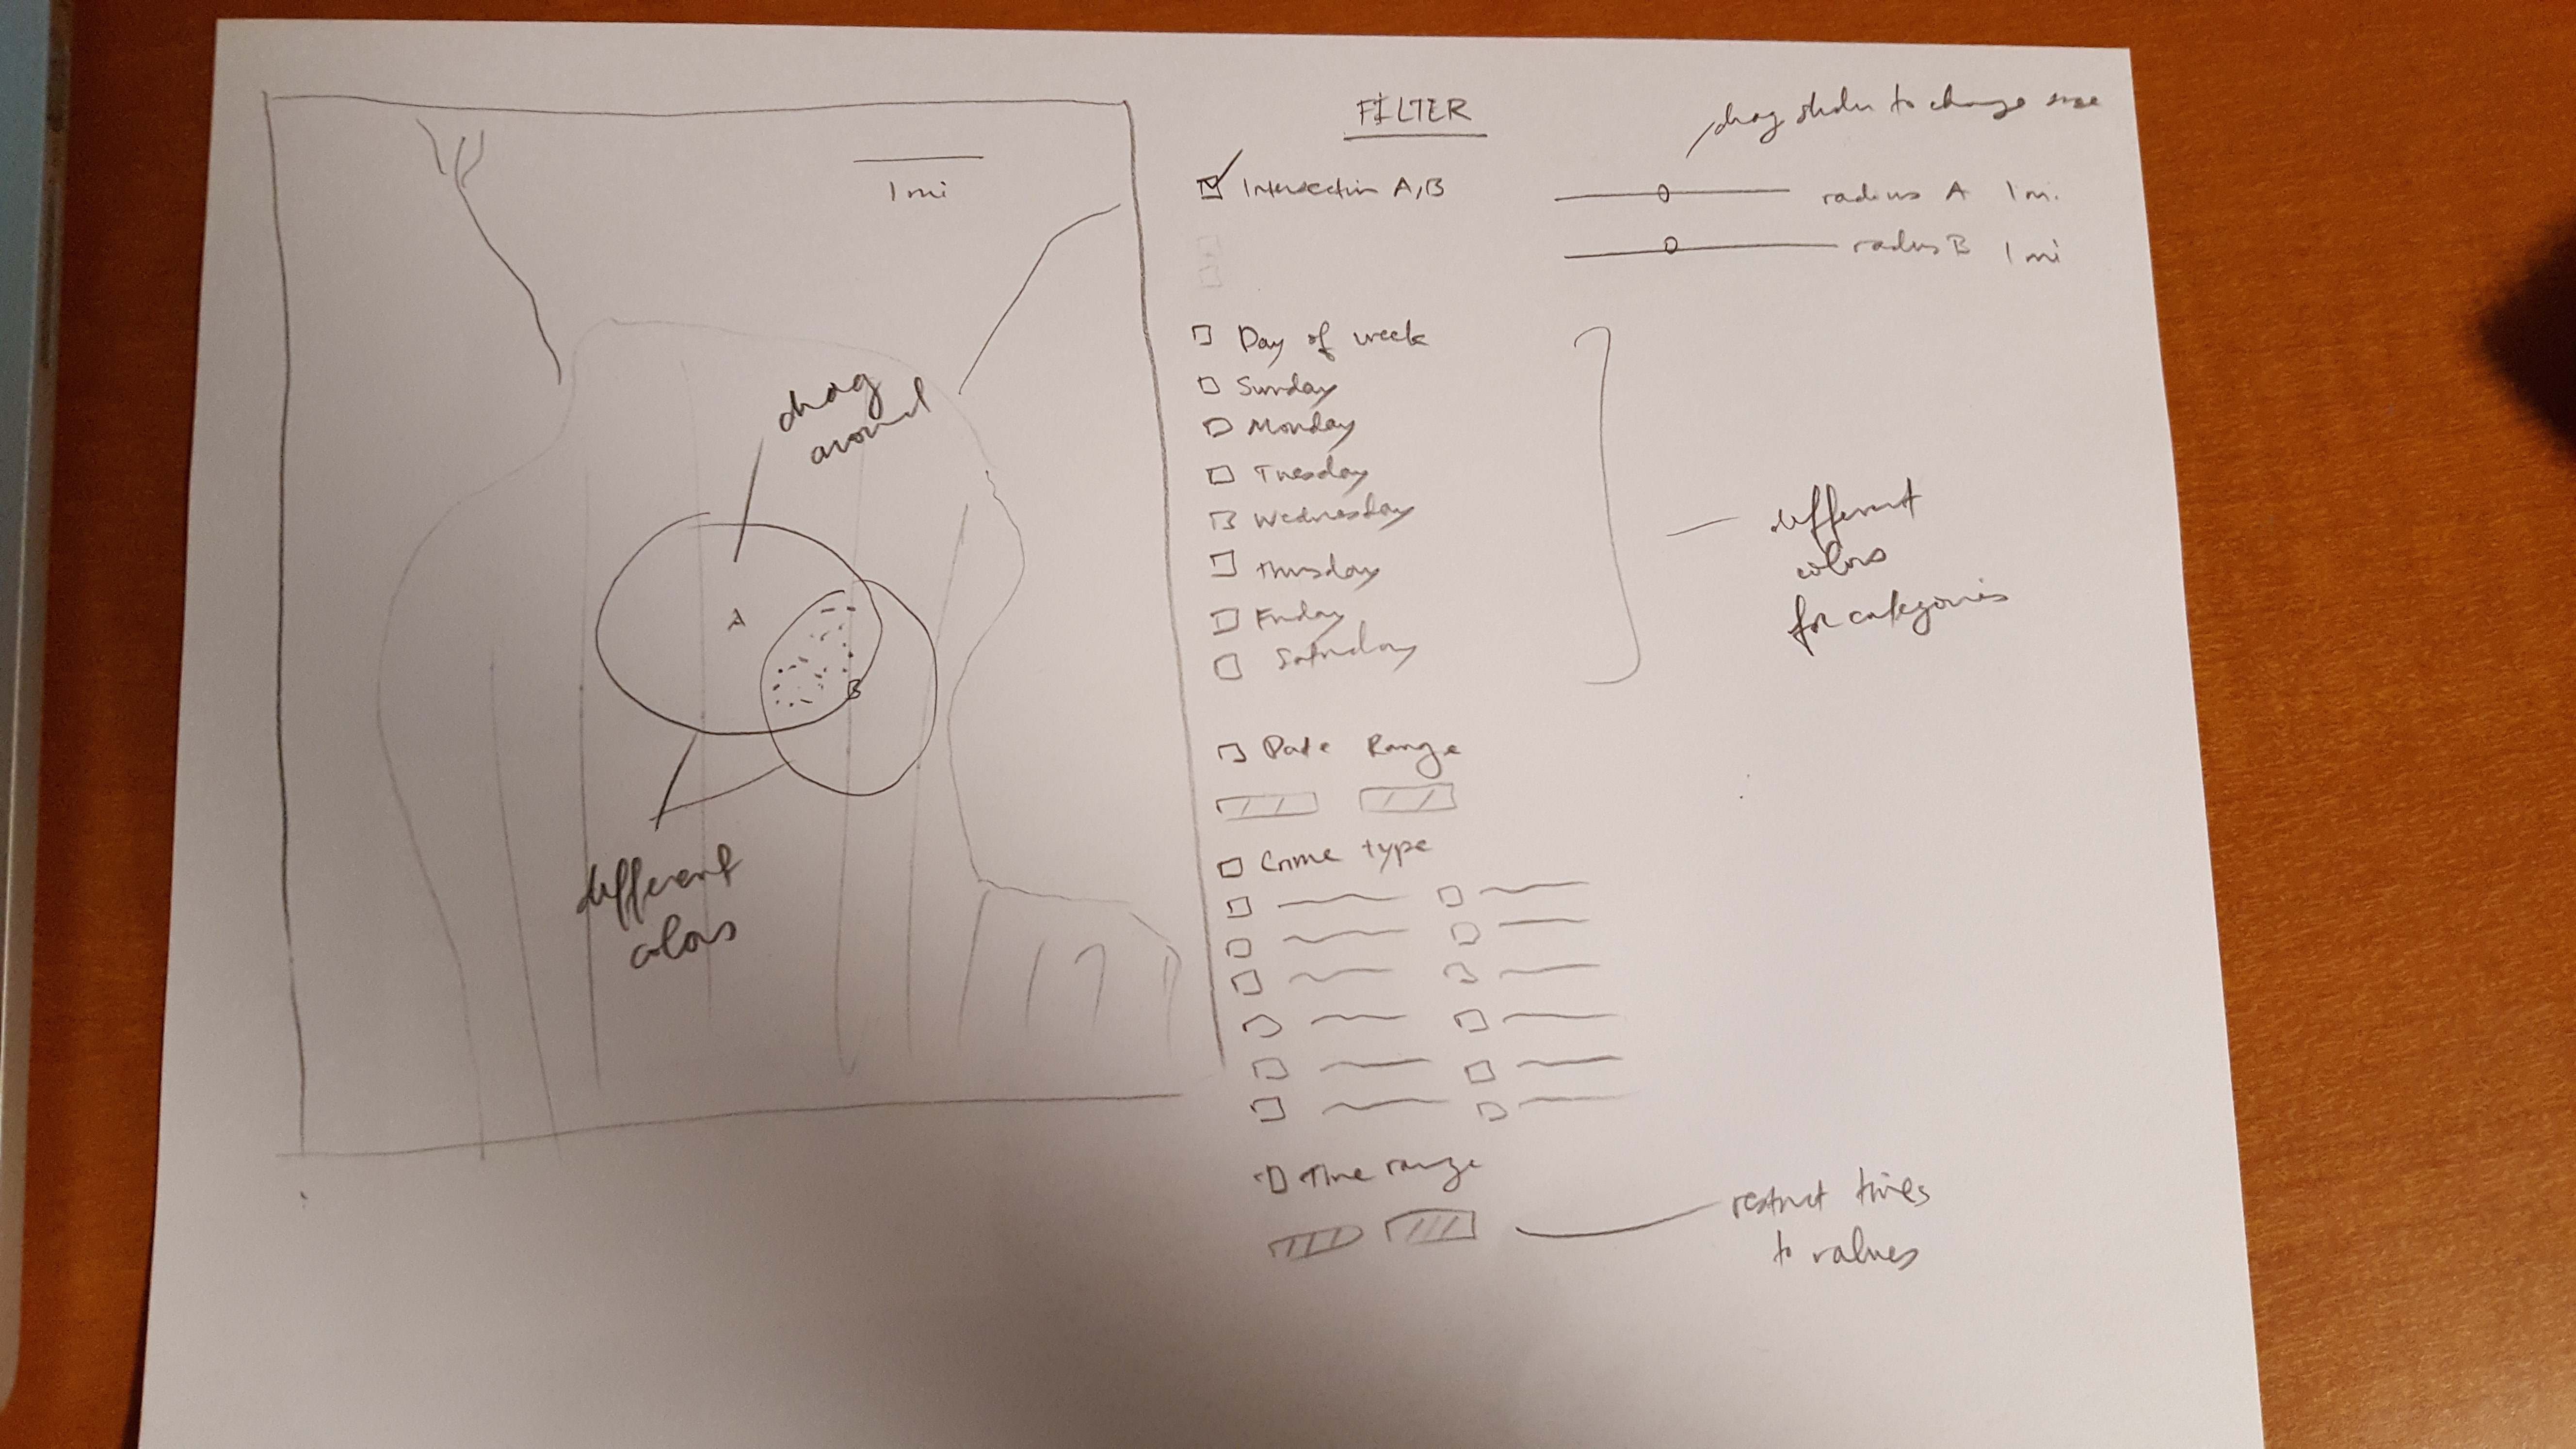 1 mi
drag
around
A
B
different
colors
FILTER
drag slider to change size
Intersection A,B
radius A 1 mi.
radius B 1 mi
Day of week
Sunday
Monday
Tuesday
Wednesday
Thursday
Friday
Saturday
different
colors
for categories
Date Range
Crime type
Time range
restrict times
to values